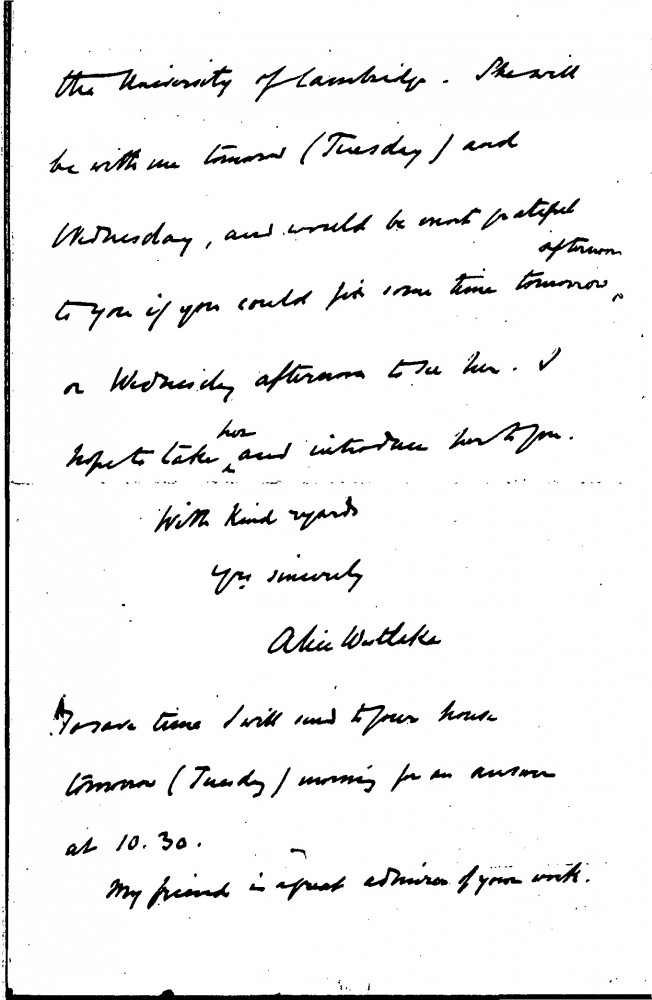 the University of Cambridge. She will
be with me tomorrow (Tuesday) and
Wednesday, and would be most grateful
afternoon
to you if you could fix some time tomorrow
or Wednesday afternoon to see her. I
her
hope to take and introduce her to you.
With kind regards
Yrs sincerely
Alice Westlake
To save time I will send to your house
tomorrow (Tuesday) morning for an answer
at 10.30.
My friend is a great admirer of your work.